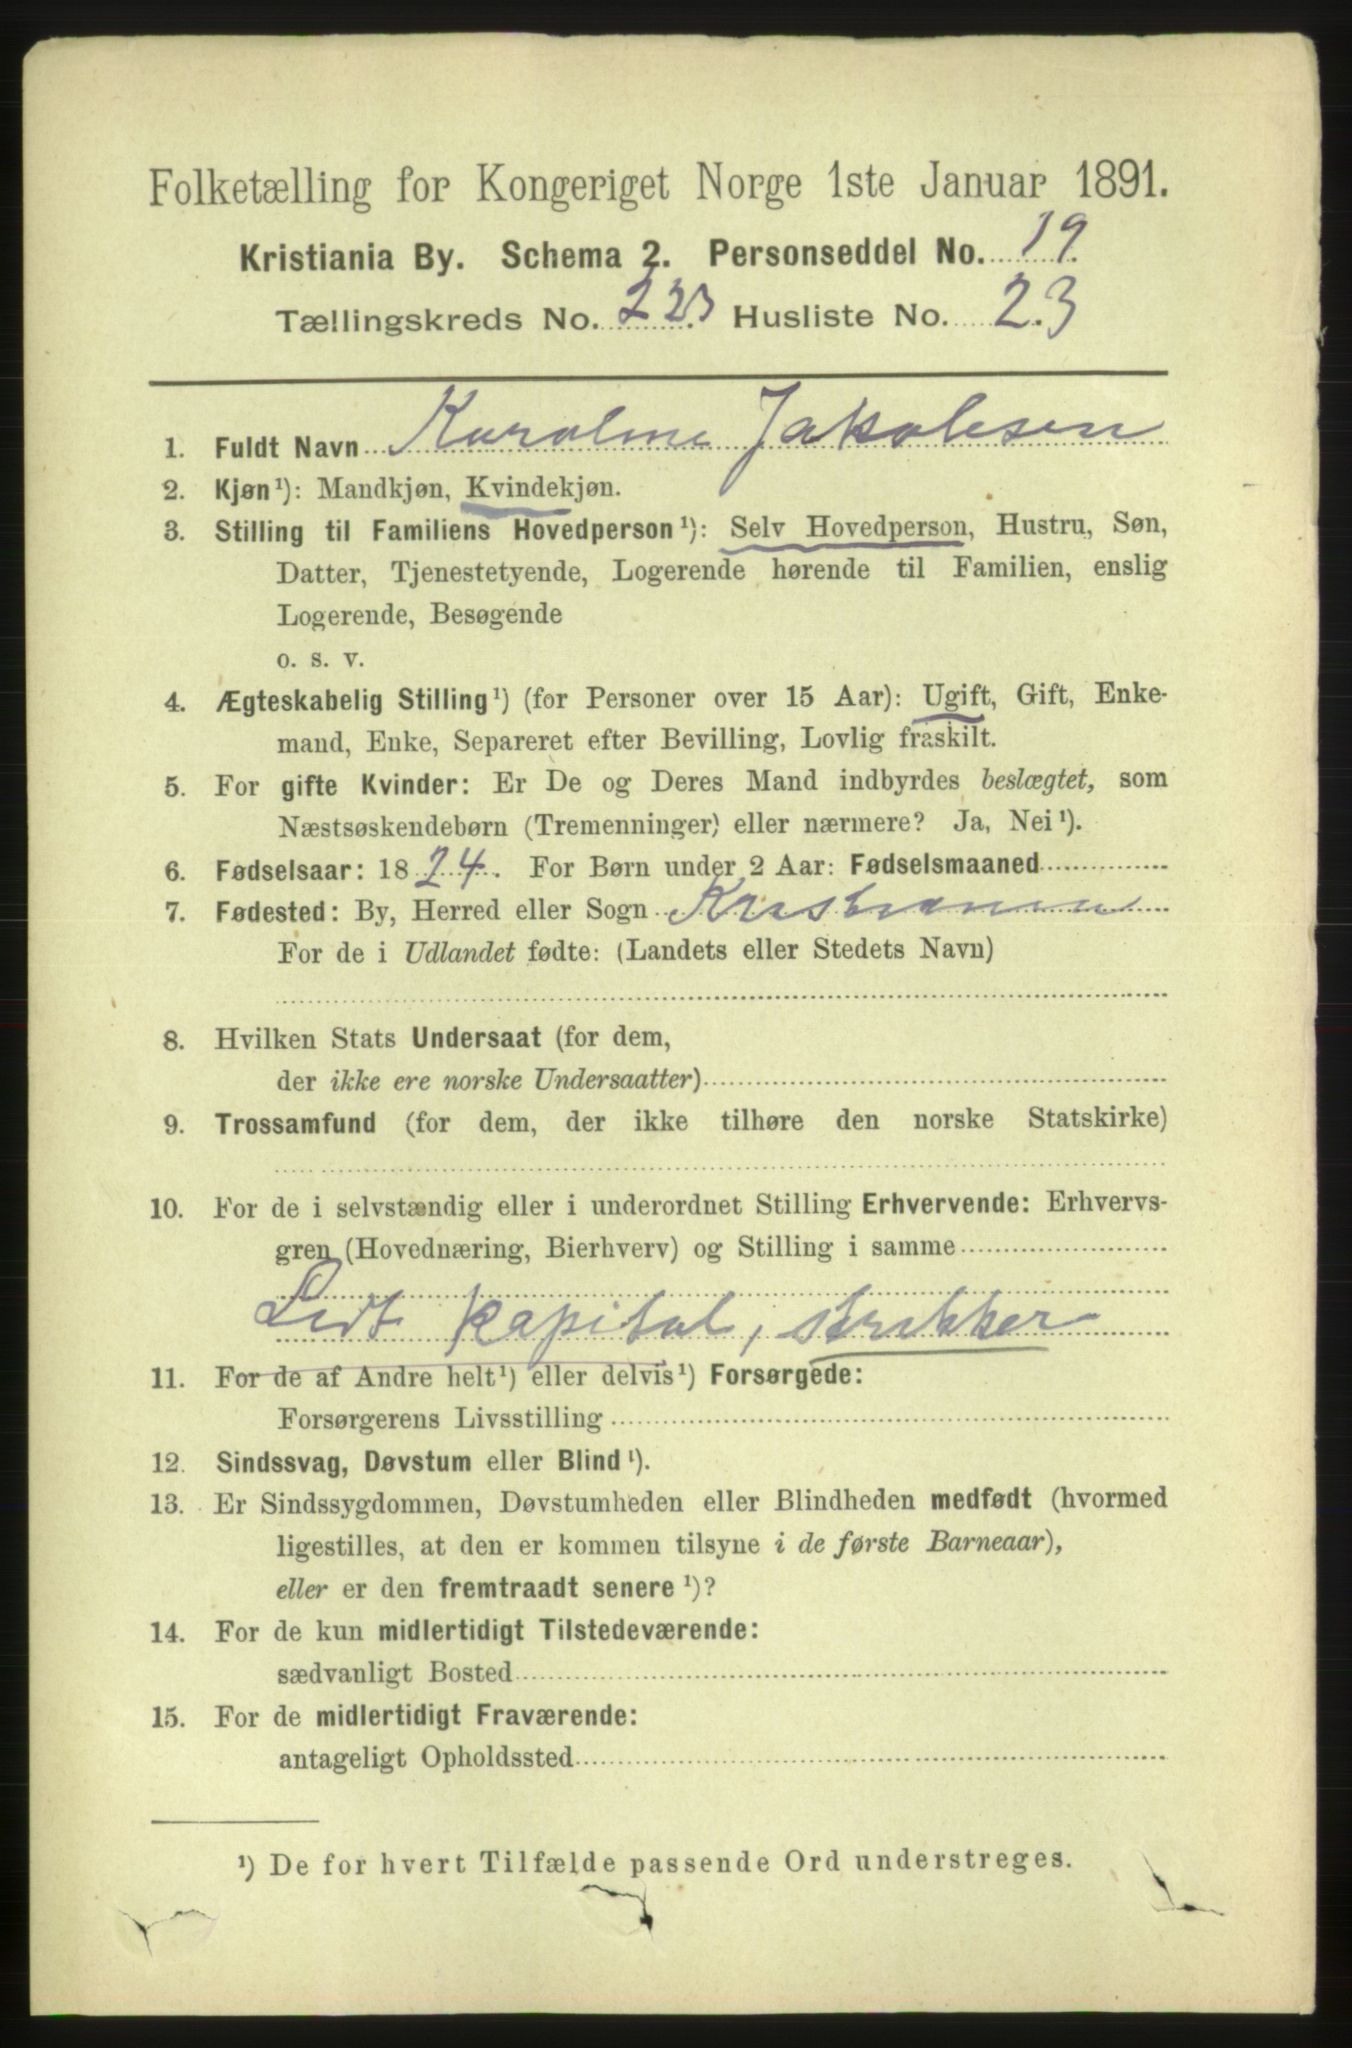 Folketælling for Kongeriget Norge 1ste Januar 1891.
Kristiania By. Schema 2. Personseddel No. 19.
Tællingskreds No. 223. Husliste No. 23
1. Fuldt Navn Karoline Jakobsen
2. Kjøn¹): Mandkjøn, Kvindekjøn.
3. Stilling til Familiens Hovedperson¹): Selv Hovedperson, Hustru, Søn,
Datter, Tjenestetyende, Logerende hørende til Familien, enslig
Logerende, Besøgende
o. s. v.
4. Ægteskabelig Stilling¹) (for Personer over 15 Aar): Ugift, Gift, Enke-
mand, Enke, Separeret efter Bevilling, Lovlig fraskilt.
5. For gifte Kvinder: Er De og Deres Mand indbyrdes beslægtet, som
Næstsøskendebørn (Tremenninger) eller nærmere? Ja, Nei¹).
6. Fødselsaar: 1824. For Børn under 2 Aar: Fødselsmaaned
7. Fødested: By, Herred eller Sogn Kristiania
For de i Udlandet fødte: (Landets eller Stedets Navn)
8. Hvilken Stats Undersaat (for dem,
der ikke ere norske Undersaatter)
9. Trossamfund (for dem, der ikke tilhøre den norske Statskirke)
10. For de i selvstændig eller i underordnet Stilling Erhvervende: Erhvervs-
gren (Hovednæring, Bierhverv) og Stilling i samme
Lidt kapital, strikker
11. For de af Andre helt¹) eller delvis¹) Forsørgede:
Forsørgerens Livsstilling
12. Sindssvag, Døvstum eller Blind¹).
13. Er Sindssygdommen, Døvstumheden eller Blindheden medfødt (hvormed
ligestilles, at den er kommen tilsyne i de første Barneaar),
eller er den fremtraadt senere¹)?
14. For de kun midlertidigt Tilstedeværende:
sædvanligt Bosted
15. For de midlertidigt Fraværende:
antageligt Opholdssted
¹) De for hvert Tilfælde passende Ord understreges.